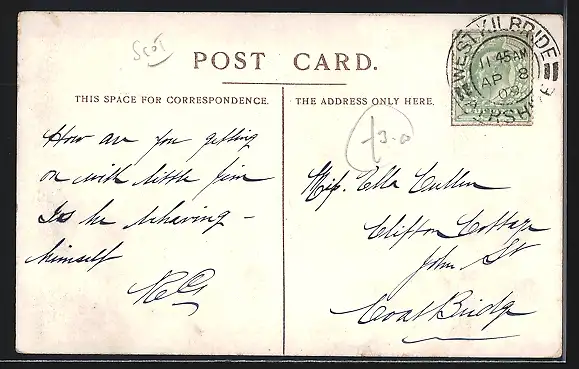 Scot
POST CARD.
THIS SPACE FOR CORRESPONDENCE.
THE ADDRESS ONLY HERE.
WEST KILBRIDE
11.45AM
AP 8
09
AYRSHIRE
How are you getting
on with little Jim
Is he behaving –
himself
RG
£3-0
Miss. Ella Cullen
Clifton Cottage
John St
Coat Bridge